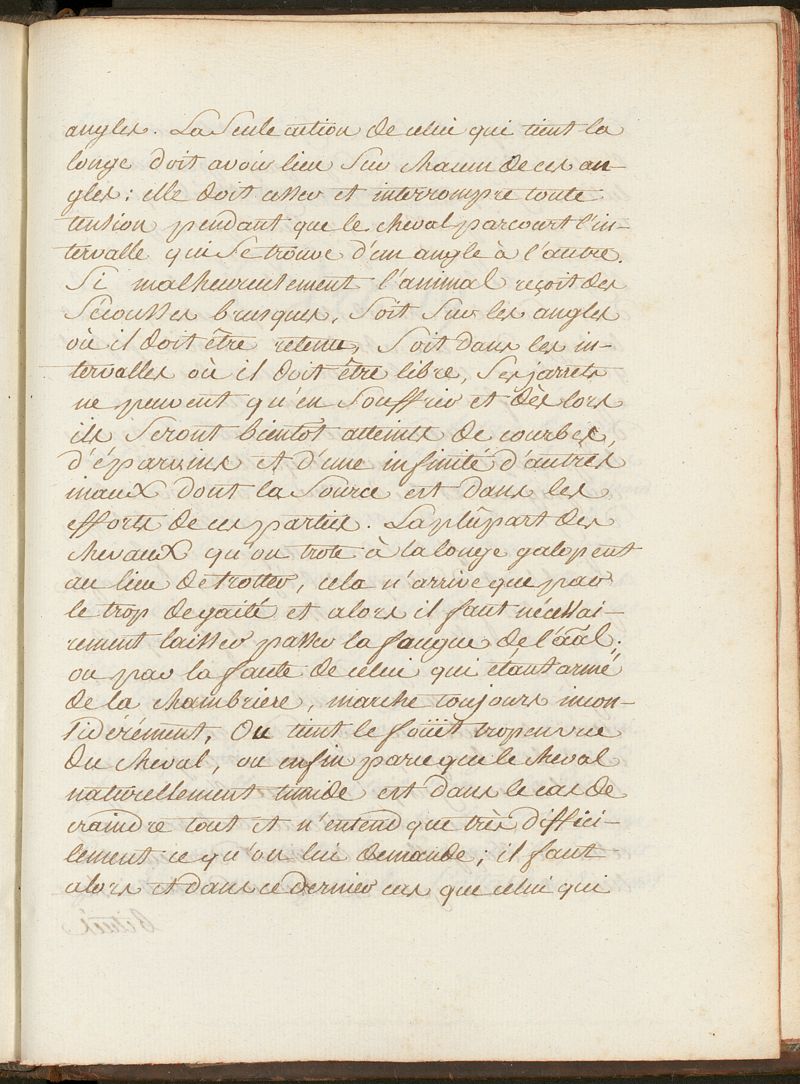 angles. La Seule action de celui qui tient la
longe doit avoir lieu Sur chacun de ces an-
gles: elle doit cesser et interrompre toute
tension pendant que le cheval parcourt l'in-
tervalle qui Se trouve d'un angle à l'autre.
Si malheureusement l'animal reçoit des
Sécousses brusques, Soit Sur les angles
où il doit être retenu, Soit dans les in-
tervalles où il doit être libre, Ses jarrets
ne peuvent qu'en Souffrir et dès lors
ils Seront bientot atteints de courbes,
d'éparvins et d'une infinité d'autres
maux dont la Source est dans les
efforts de ces parties. La plûpart des
chevaux qu'on trote à la longe galopent
au lieu de trotter, cela n'arrive que par
le trop de gaité et alors il faut nécessai-
rement laisser passer la fougue de l'āāl;
ou par la faute de celui qui étant armé
de la chambriere, marche toujours incon-
sidérément, Ou tient le foüet trop en vue
du cheval, ou enfin parceque le cheval
naturellement timide est dans le cas de
craindre tout et n'entend que très diffici-
lement ce qu'on lui demande; il faut
alors et dans ce dernier cas que celui qui